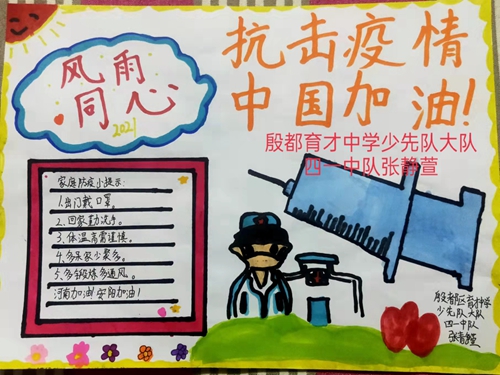 风雨
同心
2021
抗击疫情
中国加油!
殷都育才中学少先队大队
四一中队张静萱
家庭防疫小提示:
1.出门戴口罩。
2.回家勤洗手。
3.体温高需谨慎。
4.多呆家少聚多。
5.多锻炼多通风。
河南加油!安阳加油!
殷都区育才中学
少先队大队
四一中队
张静萱